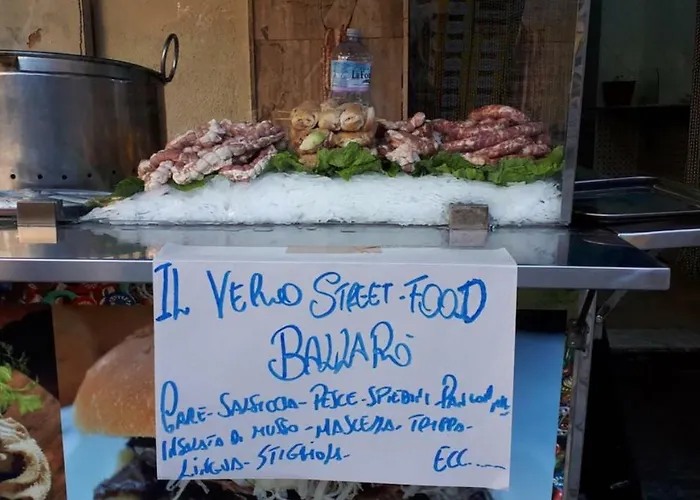 IL VERO STREET-FOOD
BALLARÒ
CARE- SALSICCIA- PESCE- SPIEDINI
INSALATA DI MUSSO - MASCELLA - TRIPPA-
LINGUA- STIGHIOLA ECC....